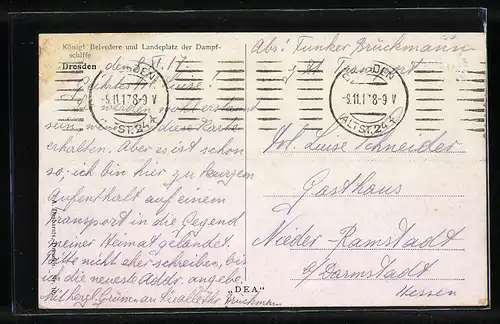 Königl. Belvedere und Landeplatz der Dampf-
schiffe
Dresden
Abs: Funker Brückmann
Transport
den 8.XI.17.
Geehrtes Frl. Luise!
Sie werden erstaunt
sein, diese Karte
erhalten. Aber es ist schon
so; ich bin hier zu kurzem
Aufenthalt auf einem
Transport in die Gegend
meiner Heimat gelandet.
Bitte nicht eher schreiben, bis
ich die neueste Addr. angebe.
Mit herzl. Grüssen an Sie alle Ihr Brückmann
DRESDEN
-9.11.17 8-9 V
(ALTST.) 24 f
DRESDEN
-9.11.17 8-9 V
(ALTST.) 24 f
Frl. Luise Schneider
Gasthaus
Nieder-Ramstadt
b/Darmstadt
Hessen
„DEA"